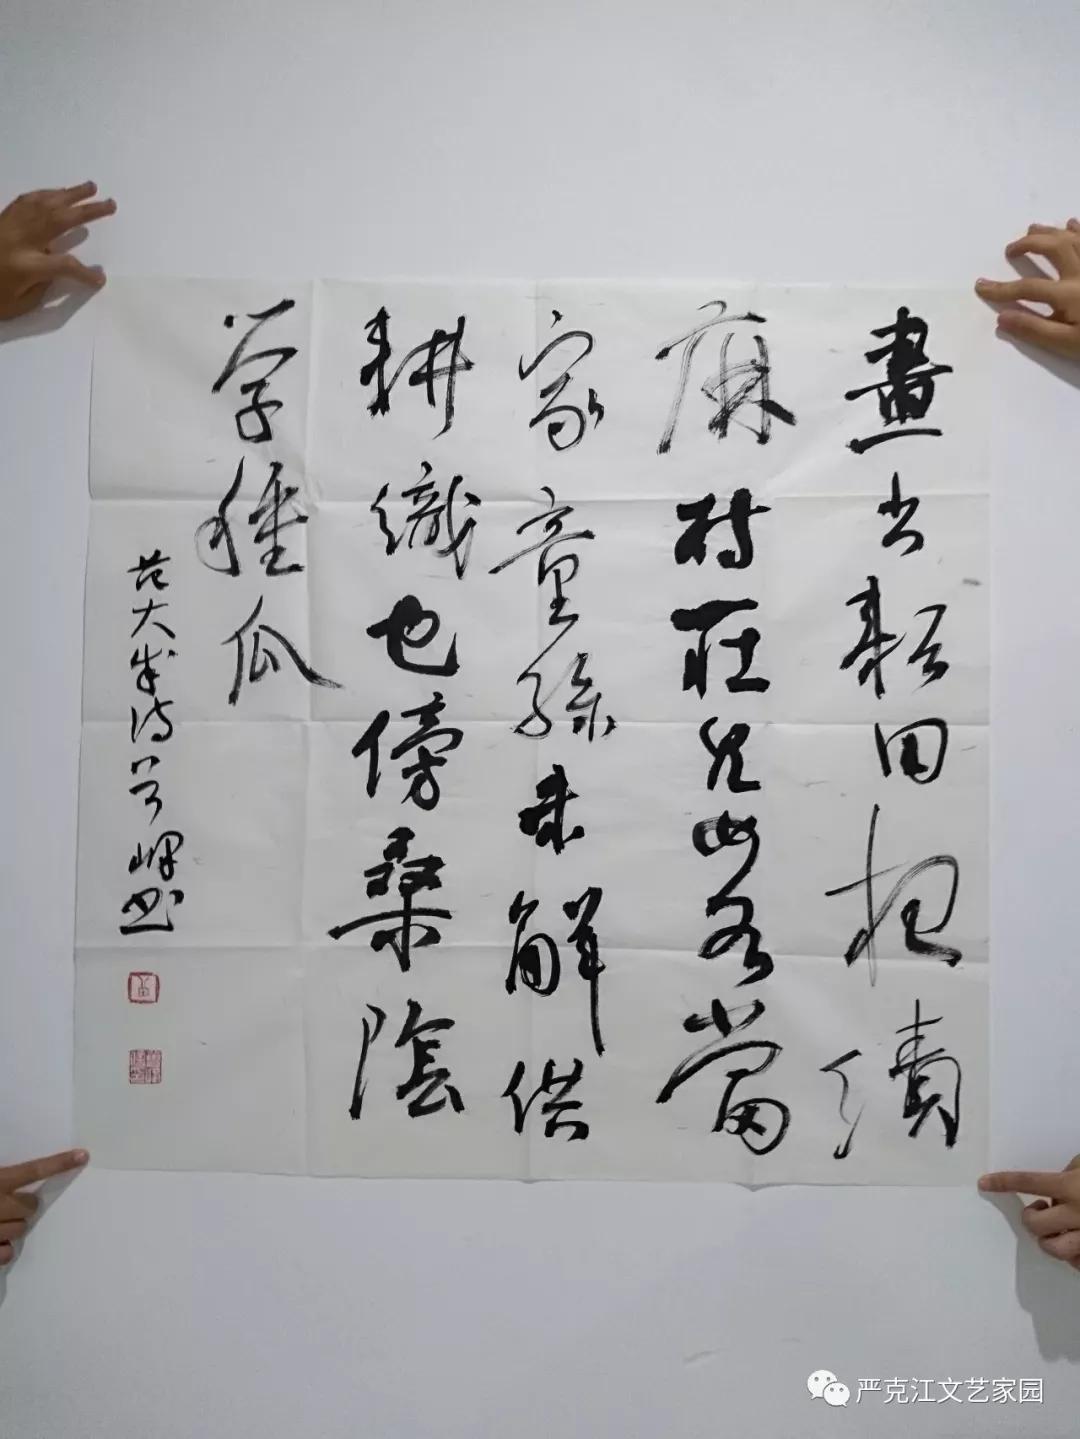 晝出耘田夜績
麻村莊兒女各當
家童孫未解供
耕織也傍桑陰
學種瓜
范大成诗书
严克江文艺家园